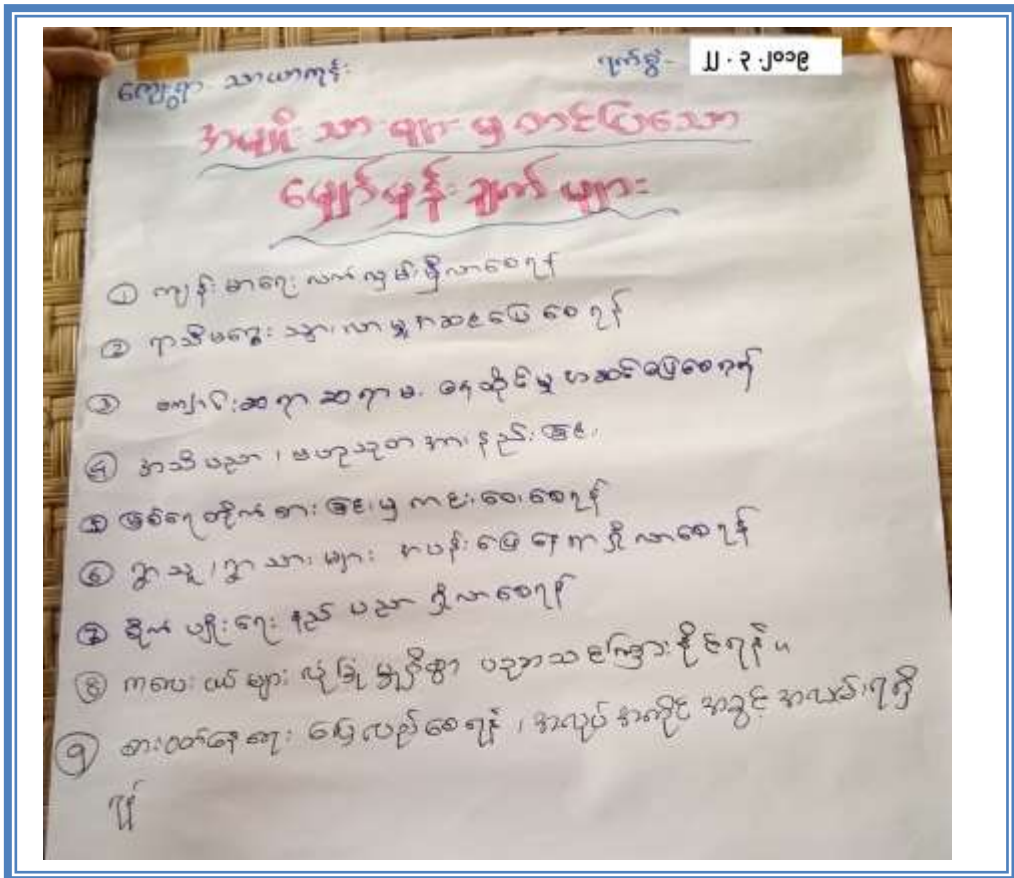 ကျေးရွာ သာယာကုန်း ရက်စွဲ- ၂၂.၃.၂၀၁၉
အမျိုးသားများမှတင်ပြသော
မျှော်မှန်းချက်များ
① ကျန်းမာရေး လက်လှမ်းမှီလာစေရန်
② ရာသီမရွေး သွားလာမှု အဆင်ပြေစေရန်
③ ကျောင်းဆရာ ဆရာမ နေထိုင်မှု အဆင်ပြေစေရန်
④ အသိပညာ၊ ဗဟုသုတ အားနည်းခြင်း
⑤ မြစ်ရေတိုက်စားခြင်းမှ ကင်းဝေးစေရန်
⑥ ရွာသူ၊ရွာသားများ အပန်းဖြေနေရာ ရှိလာစေရန်
⑦ စိုက်ပျိုးရေး နည်းပညာ ရှိလာစေရန်
⑧ ကလေးငယ်များ လုံခြုံမှုရှိစွာ ပညာသင်ကြားနိုင်ရန်။
⑨ စားဝတ်နေရေး ပြေလည်စေရန်၊ အလုပ်အကိုင် အခွင့်အလမ်းရရှိ
ရန်